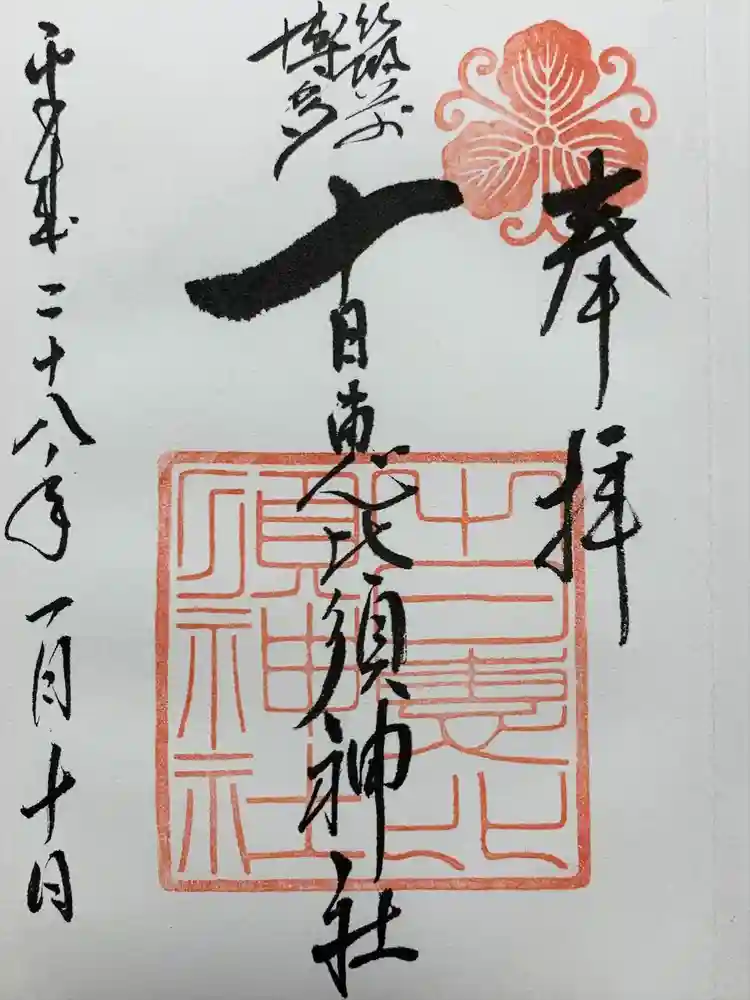 奉拝
筑前
博多
十日恵比須神社
平成二十八年一月十日
十日恵比
須神社